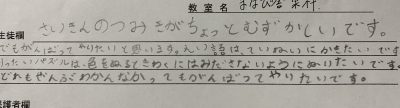 教室名
まなび舎
生徒欄
さいきんのつみきがちょっとむずかしいです。
でもがんばってやりたいと思いまう。えいご語は、ていねいにかきたいです
りったいパズルは、色をぬるときわくにはみださないようにぬりたいです。
どれもぜんぶわかんなかってもがんばってやりたいです。
護者欄